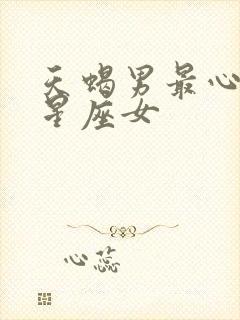 天蝎男最心
星座女
心蕊